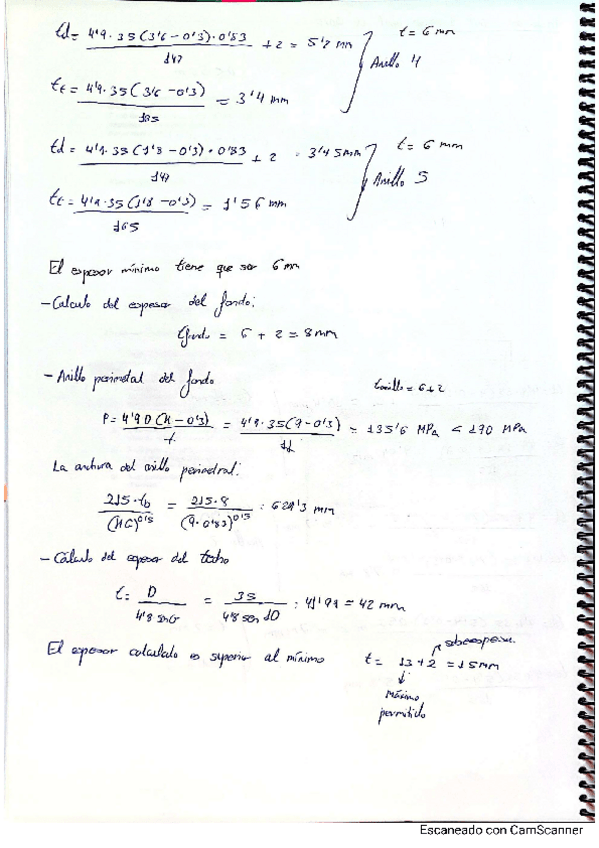 td = 4'9·35(3'6-0'3)·0'83 / 147 + 2 = 5'7 mm t = 6 mm
Anillo 4
tt = 4'9·35(3'6-0'3) / 165 = 3'4 mm
td = 4'9·35(1'8-0'3)·0'83 / 147 + 2 = 3'45mm t = 6 mm
Anillo 5
tt = 4'9·35(1'8-0'3) / 165 = 1'56 mm
El espesor mínimo tiene que ser 6 mm
- Calculo del espesor del fondo:
tfondo = 6 + 2 = 8mm
- Anillo perimetral del fondo tanillo = 6+2
P = 4'9 D (H-0'3) / t = 4'9·35(9-0'3) / 11 = 135'6 MPa < 170 MPa
La anchura del anillo perimetral:
215·tb / (HG)^0'5 = 215·8 / (9·0'83)^0'5 : 629'3 mm
- Cálculo del espesor del techo
t = D / 4'8 senθ = 35 / 4'8 sen 10 : 41'99 = 42 mm
sobreespesor
El espesor calculado es superior al mínimo t = 13 + 2 = 15mm
máximo
permitido
Escaneado con CamScanner